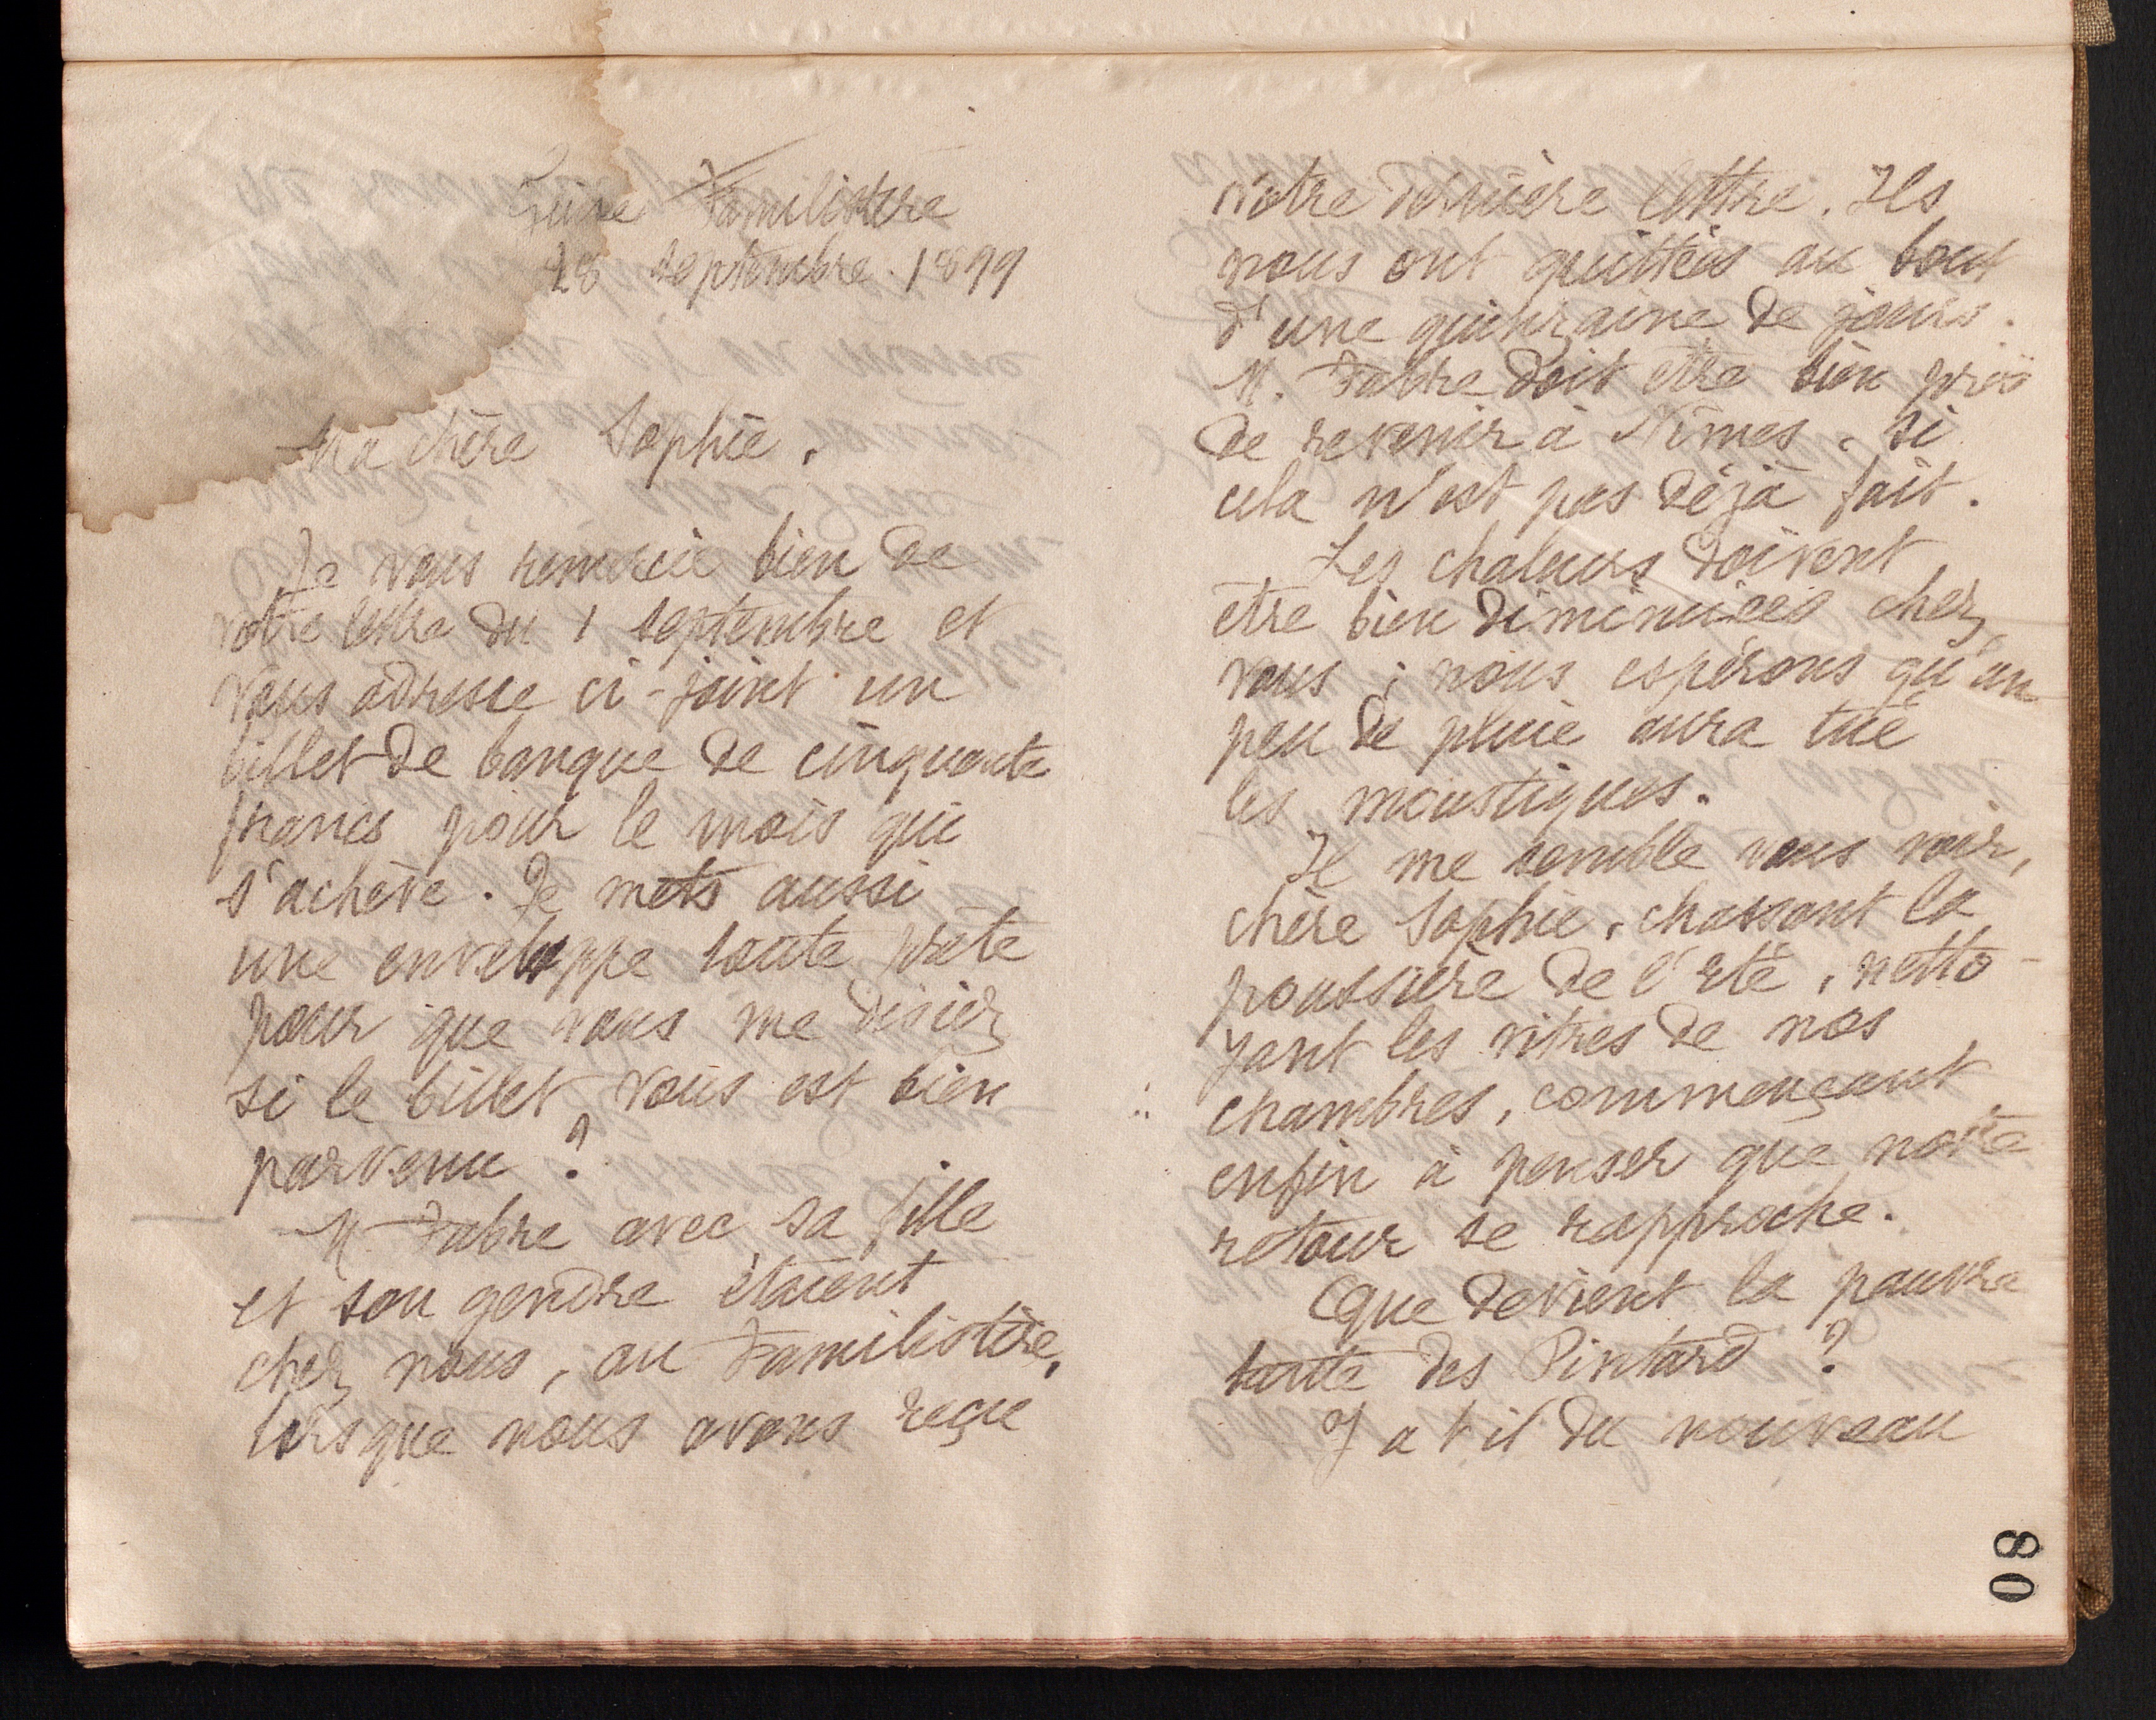 Guise Familistère
28 septembre 1899
Ma chère Sophie,
Je vous remercie bien de
votre lettre du 1 septembre et
vous adresse ci-joint un
billet de banque de cinquante
francs pour le mois qui
s'achève. Je mets aussi
une enveloppe toute prête
pour que vous me disiez
si le billet vous est bien
parvenu ?
M. Fabre avec sa fille
et son gendre étaient
chez nous, au Familistère,
lorsque nous avons reçu
votre dernière lettre. Ils
nous ont quittés au bout
d'une quinzaine de jours.
M. Fabre doit être bien près
de revenir à Nîmes, si
cela n'est pas déjà fait.
Les chaleurs doivent
être bien diminuées chez
vous ; nous espérons qu'un
peu de pluie aura tué
les moustiques.
Il me semble vous voir,
chère Sophie, chassant la
poussière de l'été, netto-
yant les vitres de nos
chambres, commençant
enfin à penser que notre
retour se rapproche.
Que devient la pauvre
tante des Pintard ?
Y a t il du nouveau
80